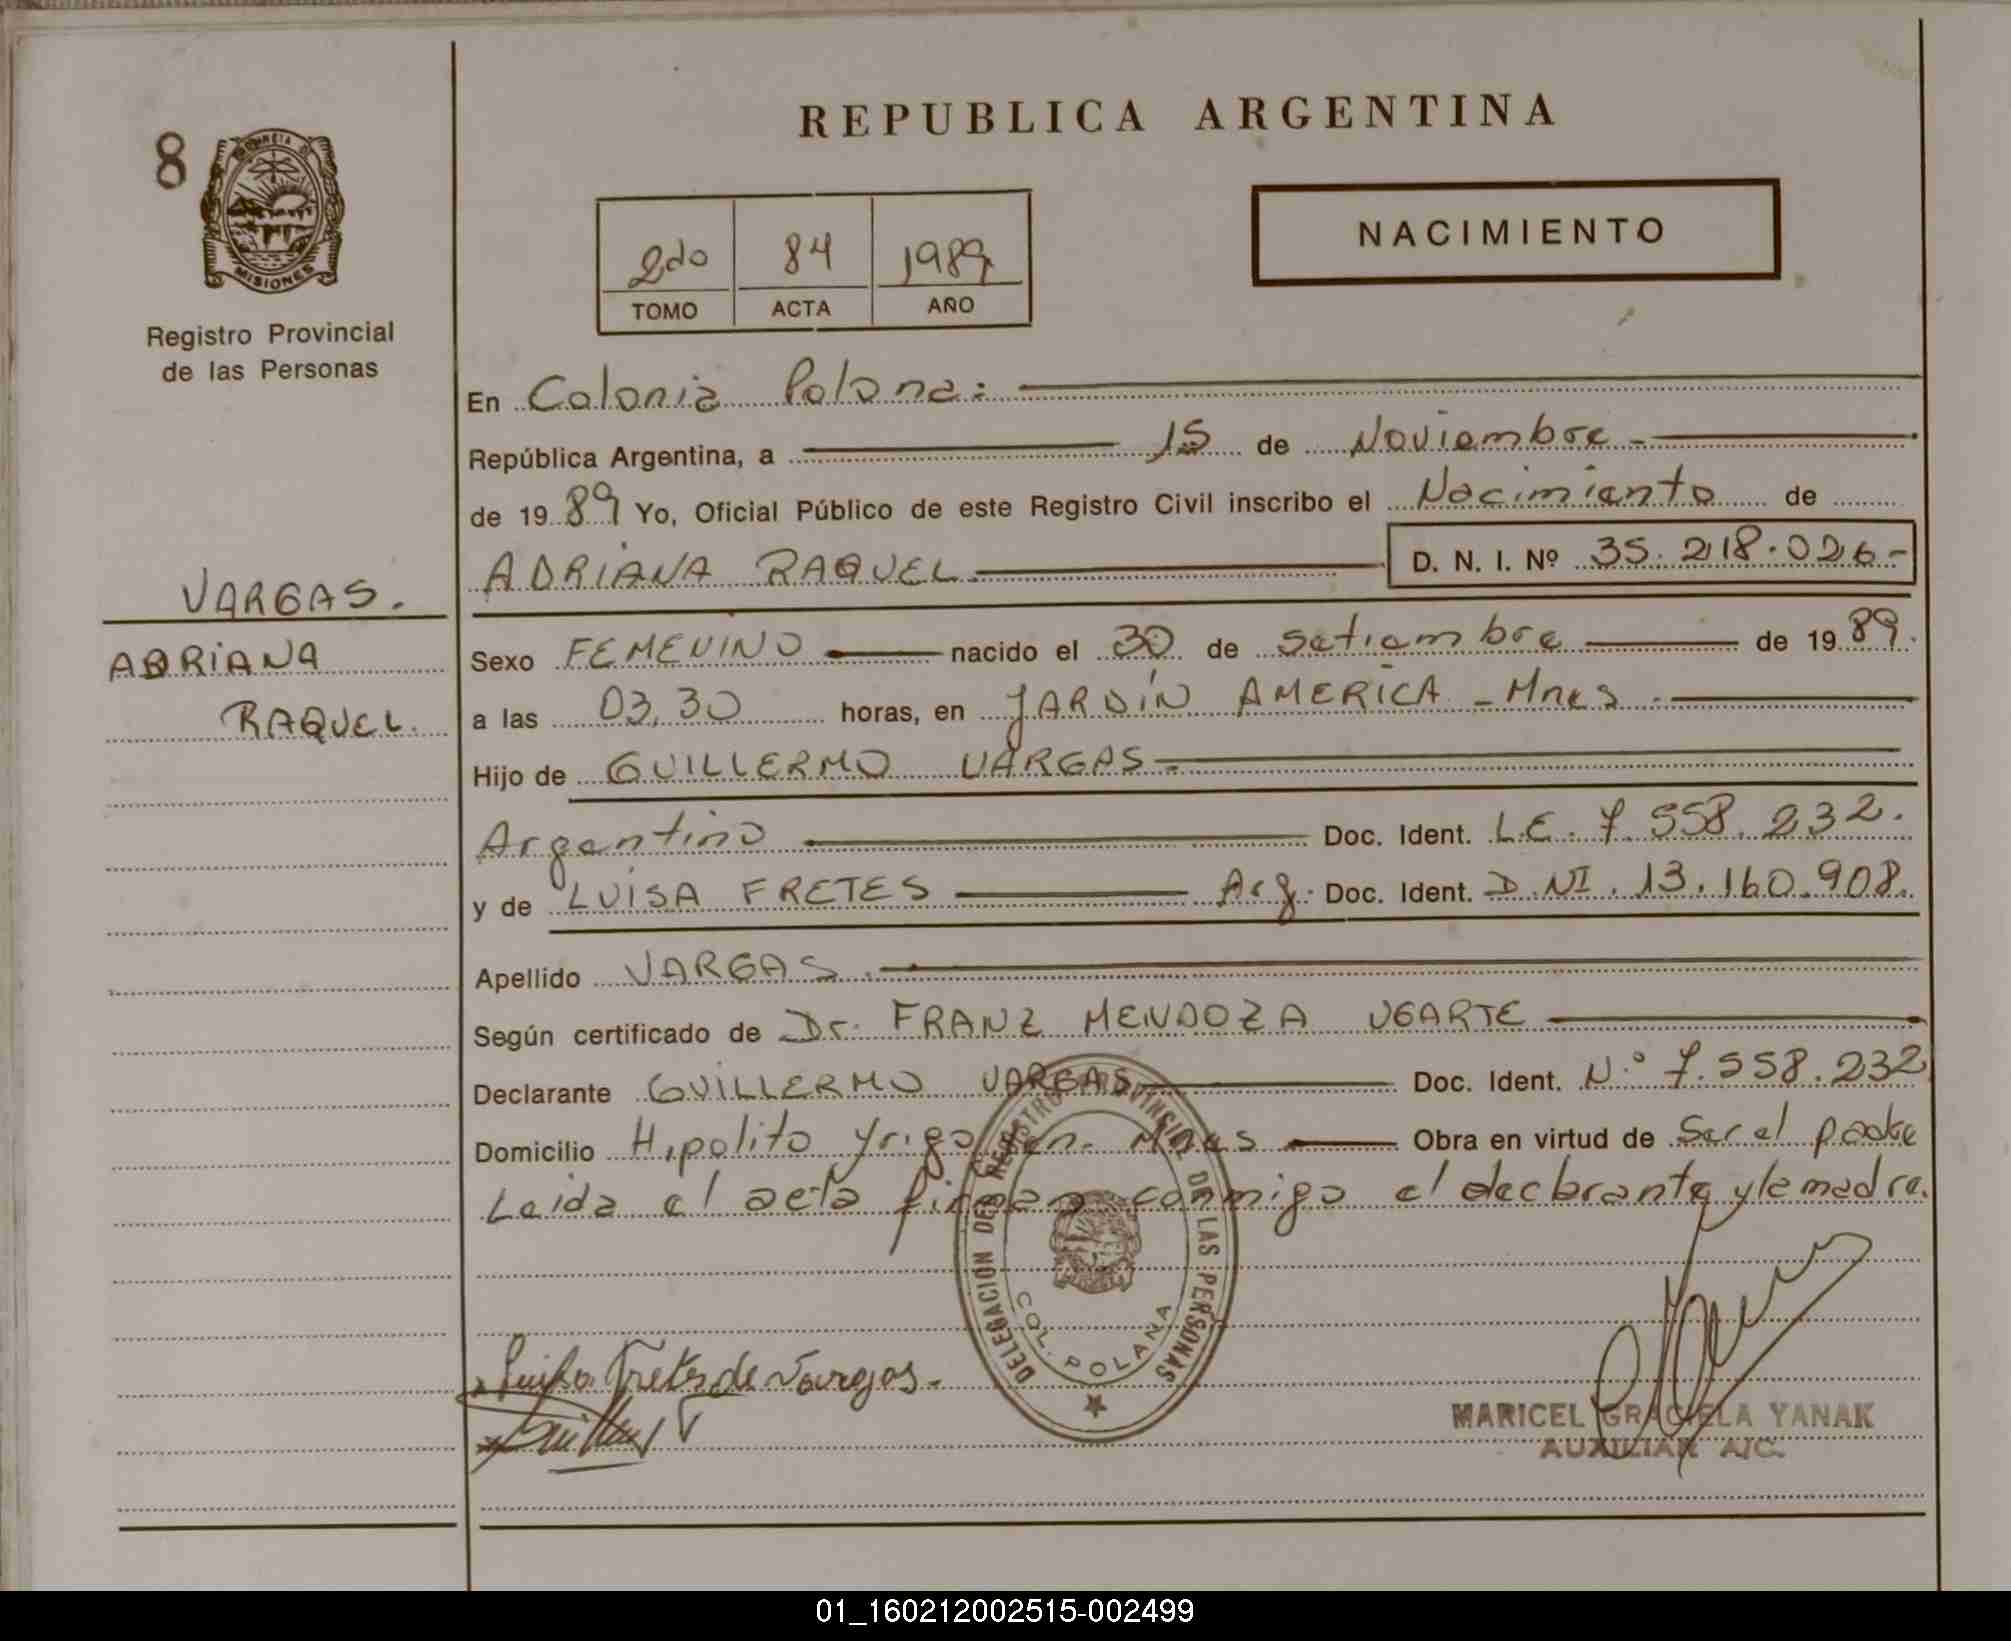 REPUBLICA ARGENTINA
8
PROVINCIA DE
MISIONES
Registro Provincial
de las Personas
2do 84 1989
TOMO ACTA AÑO
NACIMIENTO
En Colonia Polana:
República Argentina, a 15 de Noviembre
de 1989 Yo, Oficial Público de este Registro Civil inscribo el Nacimiento de
ADRIANA RAQUEL D. N. I. Nº 35.218.026-
VARGAS.
ADRIANA
RAQUEL.
Sexo FEMENINO nacido el 30 de Setiembre de 1989.
a las 03,30 horas, en JARDÍN AMERICA - Mnes
Hijo de GUILLERMO VARGAS
Argentino Doc. Ident. L.E. 7.558.232.
y de LUISA FRETES Arg. Doc. Ident. D.NI. 13.160.908.
Apellido VARGAS.
Según certificado de Dr. FRANZ MENDOZA UGARTE
Declarante GUILLERMO VARGAS Doc. Ident. N.º 7.558.232
Domicilio Hipolito Yrigoyen. Mnes Obra en virtud de Ser el padre
Leida el acta firman conmigo el declarante y la madre.
DELEGACION DEL REGISTRO PROVINCIAL DE LAS PERSONAS
COL. POLANA
Luisa Fretes de Vargas.
MARICEL GRACIELA YANAK
AUXILIAR A/C.
01_160212002515-002499